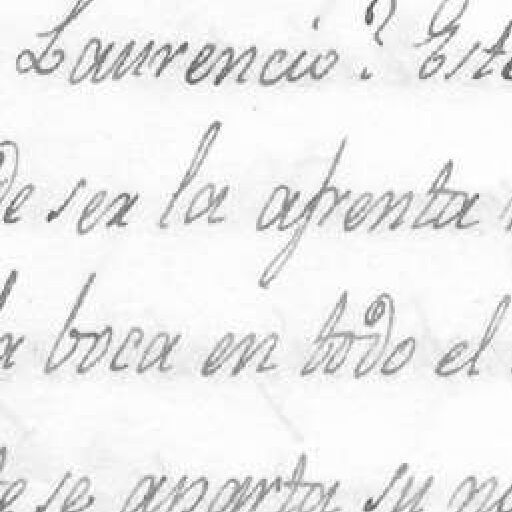 Laurencio? Este
de ser la afrenta
la boca en todo el
se aparta su